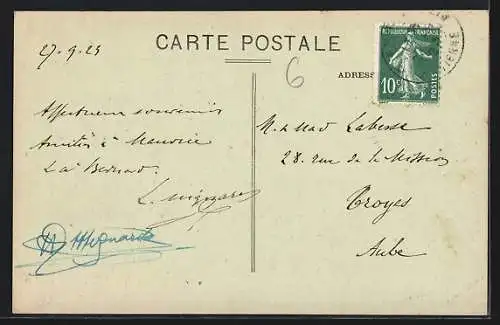 27-9-23
CARTE POSTALE
6
ADRESSE
REPUBLIQUE FRANÇAISE
10c
POSTES
Affectueux souvenirs
Amitiés à Maurice
à Bernad.
M. & Mad Labesse
28. rue de la Mission
Troyes
Aube